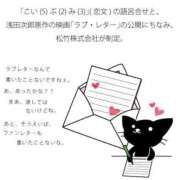 「こい(5)ぶ(2)み(3)」(恋文)の語呂合せと、
浅田次郎原作の映画「ラブ・レター」の公開にちなみ、
松竹株式会社が制定。
ラブレターなんて
書いたことないですね。
あ、あったかな？！
まあ、
あったとしても
言えないよね。
あと、そういえば、
ファンレターも
書いたことないな。